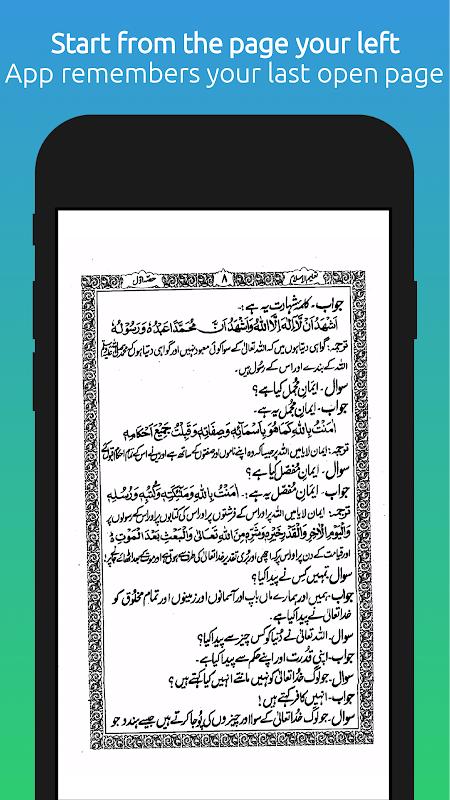 Start from the page your left
App remembers your last open page
تعلیم الاسلام ۸ حصہ اوّل
جواب۔ کلمۂ شہادت یہ ہے:۔
اَشْهَدُ اَنْ لَّا اِلٰهَ اِلَّا اللّٰهُ وَاَشْهَدُ اَنَّ مُحَمَّدًا عَبْدُهٗ وَرَسُوْلُهٗ
ترجمہ: گواہی دیتا ہوں میں کہ اللہ تعالیٰ کے سوا کوئی معبود نہیں اور گواہی دیتا ہوں کہ محمد ﷺ
اللہ کے بندے اور اس کے رسول ہیں۔
سوال۔ ایمانِ مجمل کیا ہے؟
جواب۔ ایمانِ مجمل یہ ہے۔
اٰمَنْتُ بِاللّٰهِ كَمَا هُوَ بِاَسْمَآئِهٖ وَصِفَاتِهٖ وَقَبِلْتُ جَمِيْعَ اَحْكَامِهٖ
ترجمہ: ایمان لایا میں اللہ پر جیسا کہ وہ اپنے ناموں اور صفتوں کے ساتھ ہے اور میں نے اس کے تمام احکام قبول کئے
سوال۔ ایمانِ مفصل کیا ہے؟
جواب۔ ایمانِ مفصل یہ ہے:۔ اٰمَنْتُ بِاللّٰهِ وَمَلٰٓئِكَتِهٖ وَكُتُبِهٖ وَرُسُلِهٖ
وَالْيَوْمِ الْاٰخِرِ وَالْقَدْرِ خَيْرِهٖ وَشَرِّهٖ مِنَ اللّٰهِ تَعَالٰى وَالْبَعْثِ بَعْدَ الْمَوْتِ ؕ
ترجمہ: ایمان لایا میں اللہ پر اور اس کے فرشتوں پر اور اس کی کتابوں پر اور اس کے رسولوں پر
اور قیامت کے دن پر اور اس پر کہ اچھی اور بُری تقدیر خدا تعالیٰ کی طرف سے ہوتی ہے اور موت کے بعد اٹھائے جانے پر!
سوال۔ تمہیں کس نے پیدا کیا؟
جواب۔ ہمیں اور ہمارے ماں باپ اور آسمانوں اور زمینوں اور تمام مخلوق کو
خدا تعالیٰ نے پیدا کیا ہے۔
سوال۔ اللہ تعالیٰ نے دُنیا کو کس چیز سے پیدا کیا؟
جواب۔ اپنی قدرت اور اپنے حکم سے پیدا کیا ہے۔
سوال۔ جو لوگ خدا تعالیٰ کو نہیں مانتے انہیں کیا کہتے ہیں؟
جواب۔ انہیں کافر کہتے ہیں!
سوال۔ جو لوگ خدا تعالیٰ کے سوا اور چیزوں کی پُوجا کرتے ہیں جیسے ہندو جو